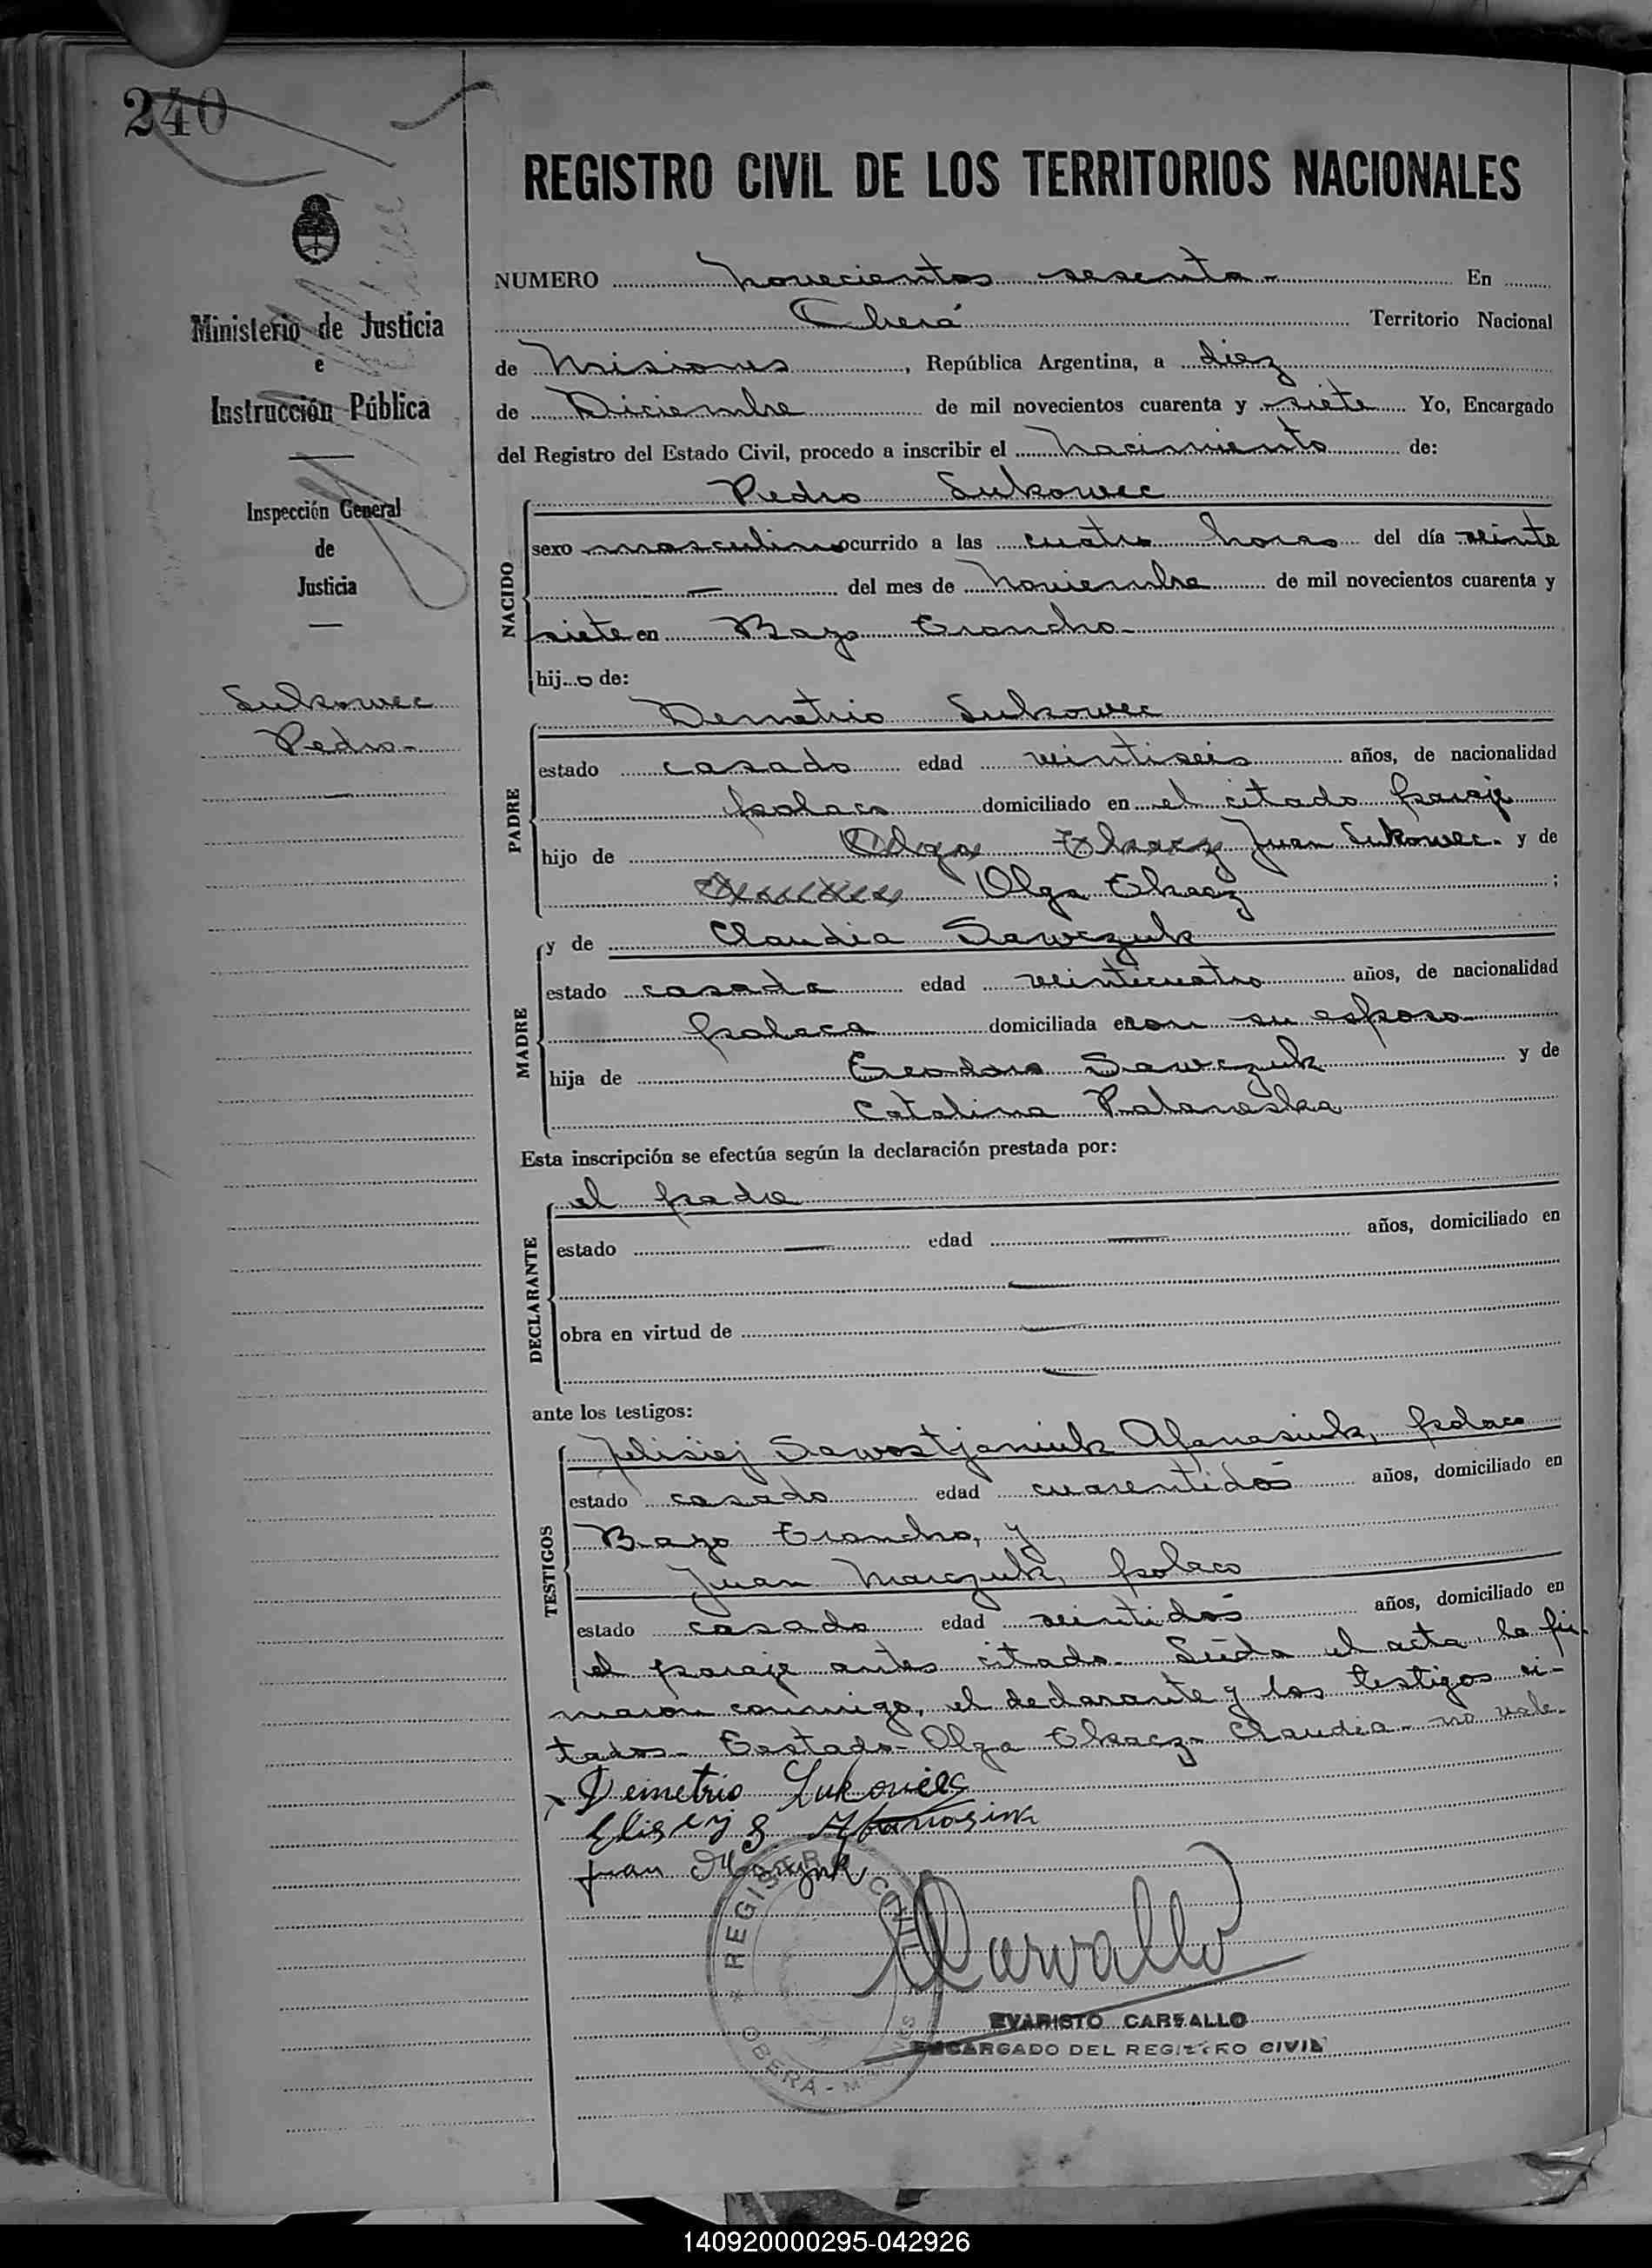 240
REGISTRO CIVIL DE LOS TERRITORIOS NACIONALES
Ministerio de Justicia
e
Instrucción Pública
Inspección General
de
Justicia
Sukowec
Pedro-
NUMERO novecientos sesenta- En
Oberá Territorio Nacional
de Misiones, República Argentina, a diez
de Diciembre de mil novecientos cuarenta y siete Yo, Encargado
del Registro del Estado Civil, procedo a inscribir el nacimiento de:
NACIDO
Pedro Sukowec
sexo masculino ocurrido a las cuatro horas del día veinte
— del mes de Noviembre de mil novecientos cuarenta y
siete en Bayo Troncho-
hij o de:
PADRE
Demetrio Sukowec
estado casado edad veintiseis años, de nacionalidad
polaco domiciliado en el citado paraje
hijo de Olga Tkacz Juan Sukowec- y de
Olga Tkacz ;
MADRE
y de Claudia Sawczuk
estado casada edad veinticuatro años, de nacionalidad
polaca domiciliada en con su esposo-
hija de Teodoro Sawczuk y de
Catalina
Esta inscripción se efectúa según la declaración prestada por:
DECLARANTE
el padre
estado — edad — años, domiciliado en
—
obra en virtud de —
—
ante los testigos:
TESTIGOS
Jelisiej Sawostjaniuk Afanasiuk, polaco
estado casado edad cuarentidós años, domiciliado en
Bayo Troncho, y
Juan Marczuk, polaco
estado casado edad veintidós años, domiciliado en
el paraje antes citado- Leída el acta, la fir-
maron conmigo, el declarante y los testigos ci-
tados- Testado- Olga Tkacz- Claudia- no vale-
Demetrio Sukowiec
Juan Marczuk
Carvallo
REGISTRO CIVIL
OBERA - MISIONES
EVARISTO CARVALLO
ENCARGADO DEL REGISTRO CIVIL
140920000295-042926